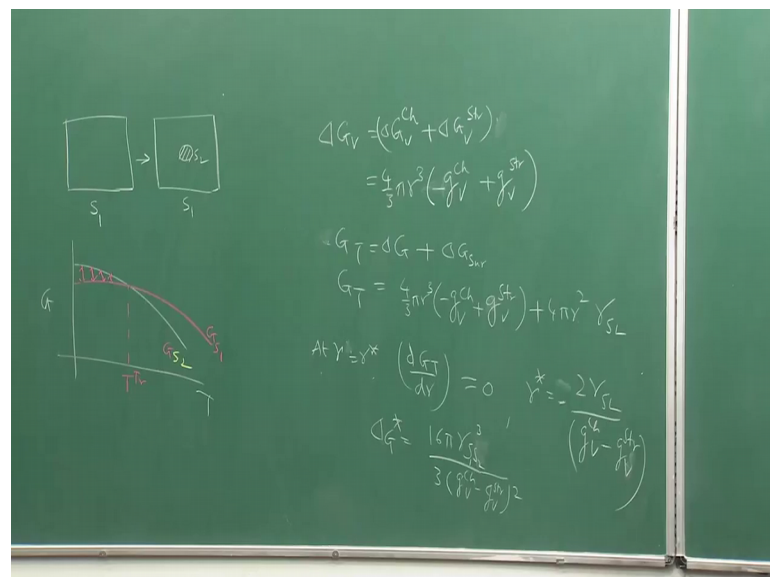 S₂
S₁ S₁
G
G_S₂ G_S₁
T^Tr T
ΔG_V = (ΔG_V^Ch + ΔG_V^Str)
= 4/3 πr³ (-g_V^Ch + g_V^Str)
G_T = ΔG + ΔG_Sur
G_T = 4/3 πr³ (-g_V^Ch + g_V^Str) + 4πr² γ_SL
At r = r* (dG_T/dr) = 0 r* = - 2γ_SL / (g_V^Ch - g_V^Str)
ΔG* = 16πγ_SL³ / 3(g_V^Ch - g_V^Str)²